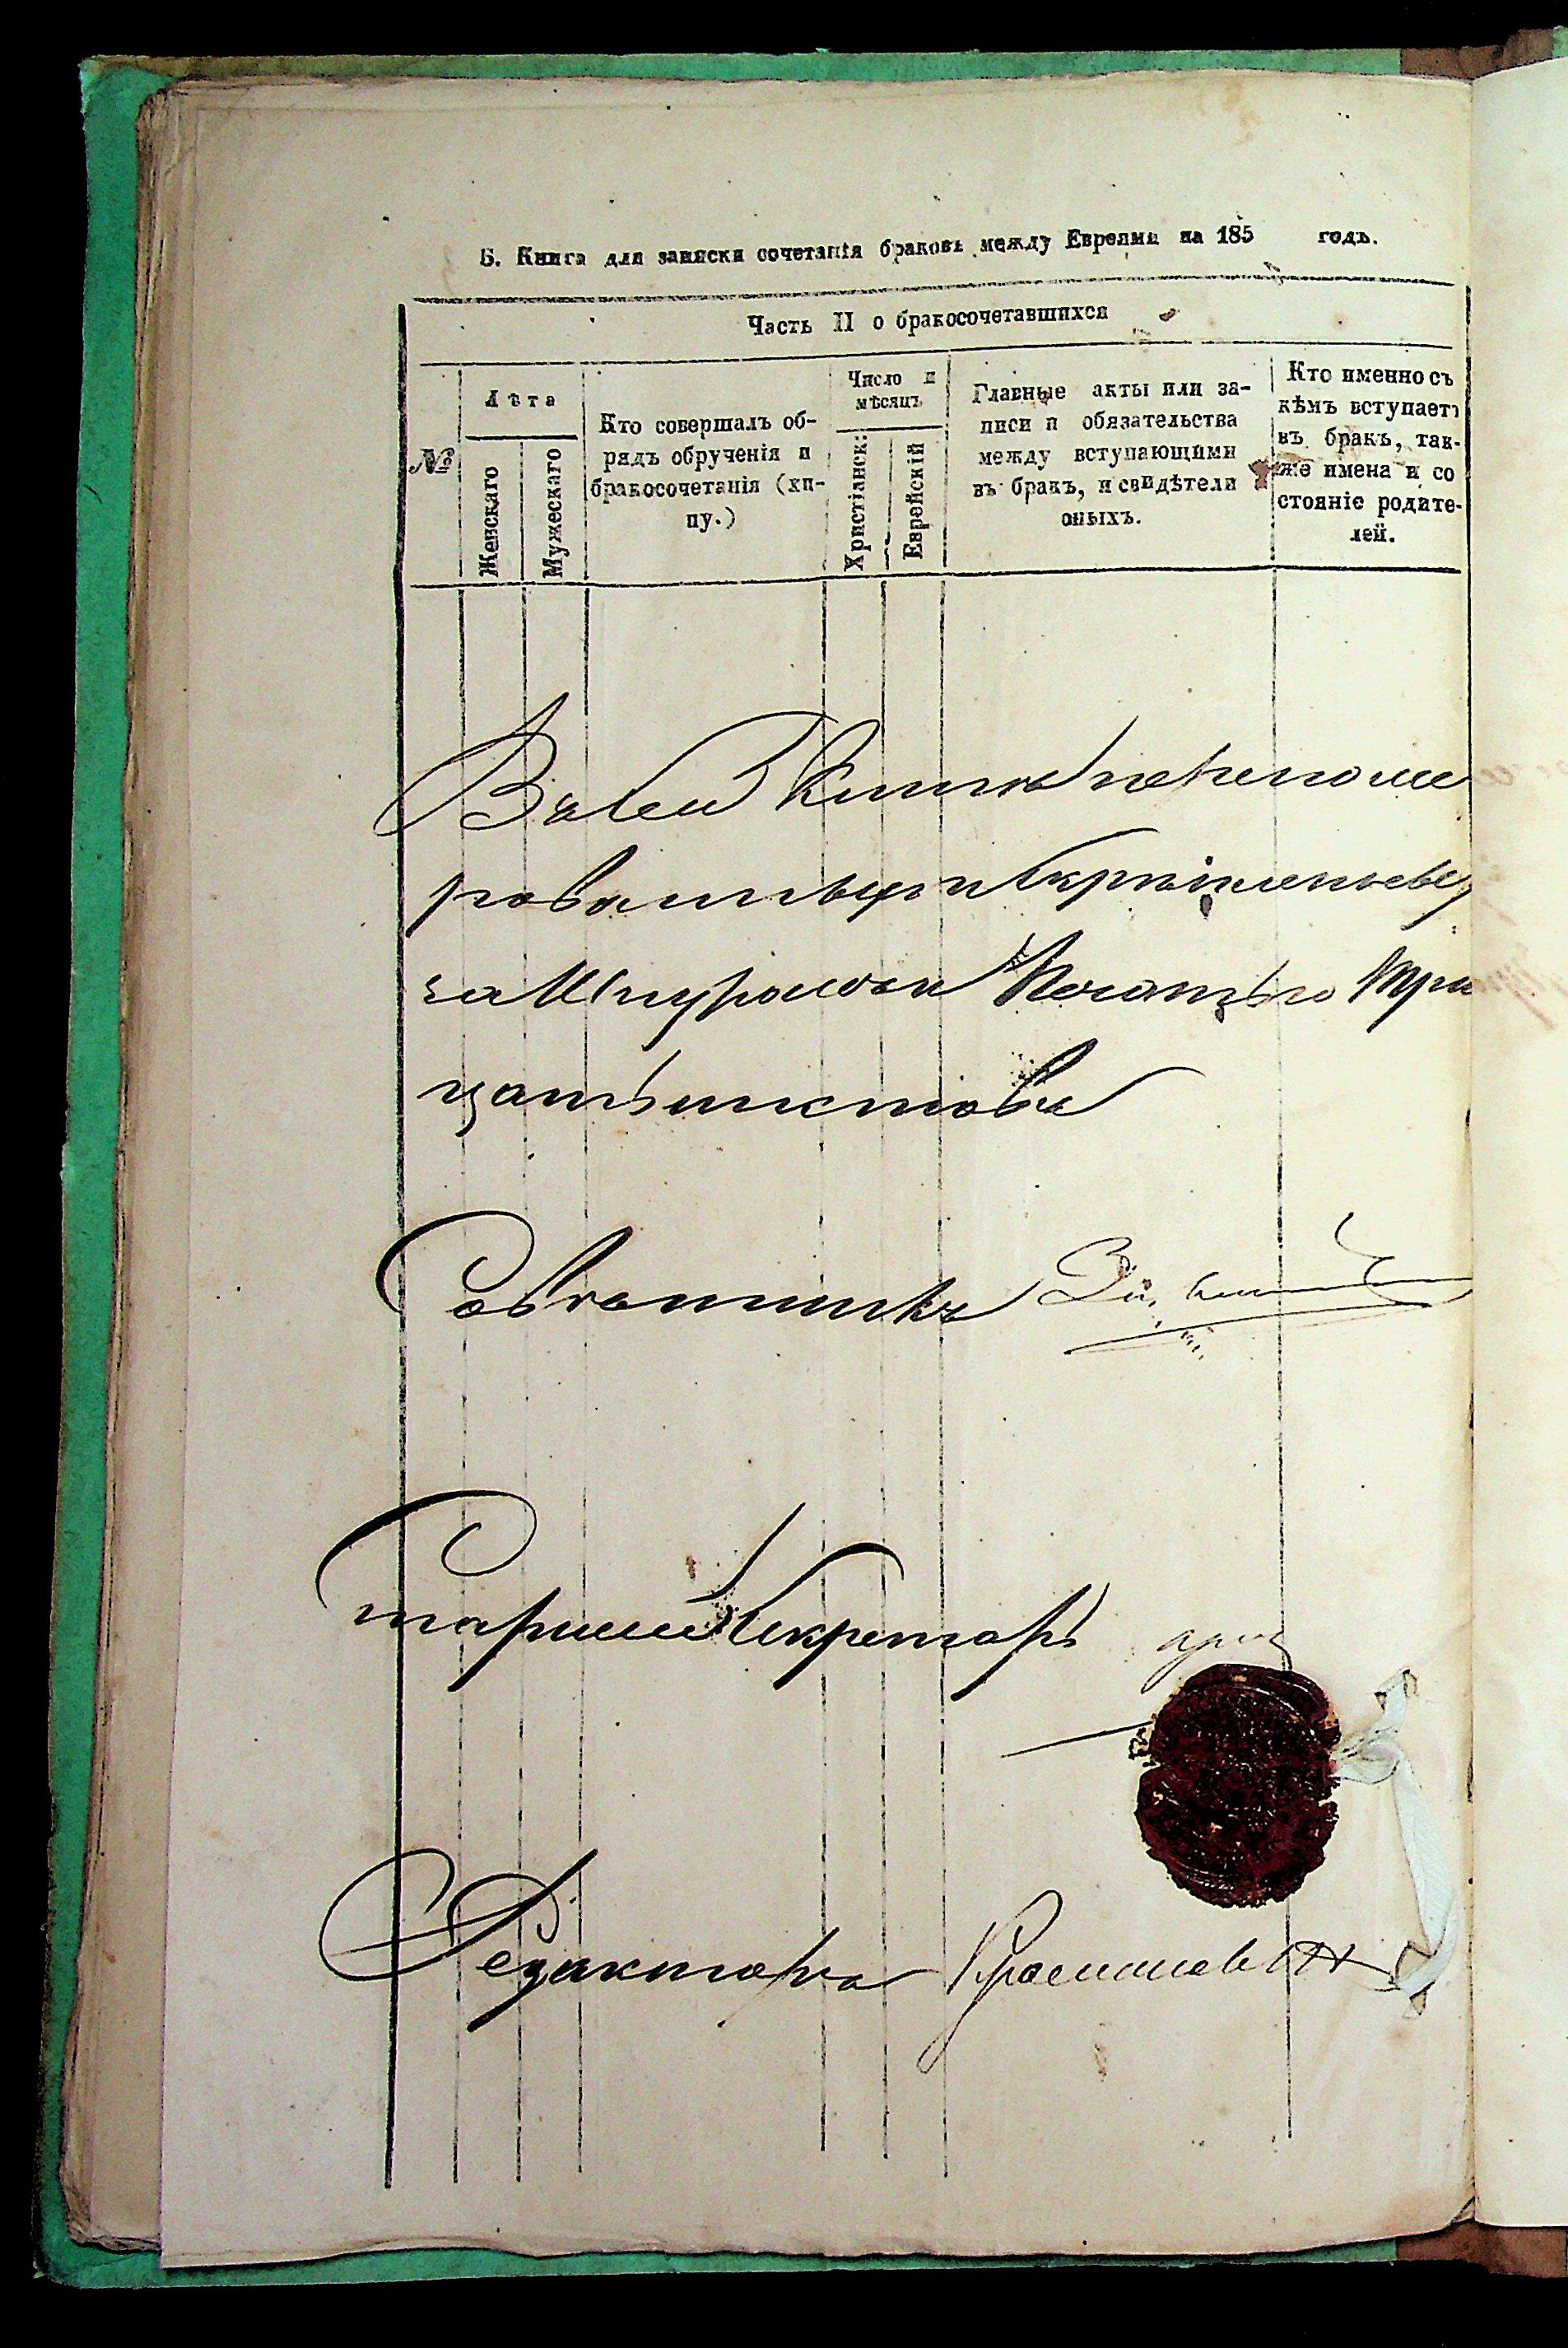 Б. Книга для записки сочетанія браковъ между Евреями на 185 годъ.
Часть II о бракосочетавшихся
№
Лѣта
Женскаго
Мужескаго
Кто совершалъ об-
рядъ обрученія и
бракосочетанія (хи-
пу.)
Число и
мѣсяцъ
Христіанск:
Еврейскій
Главные акты или за-
писи и обязательства
между вступающими
въ бракъ, и свидѣтели
оныхъ.
Кто именно съ
кѣмъ вступаетъ
въ бракъ, так-
же имена и со
стояніе родите-
лей.
Въ сей Книгѣ пе
за Шнуромъ и Печатью Три
цать листовъ
Совѣтникъ
Старшій Секретарь
Редакторъ